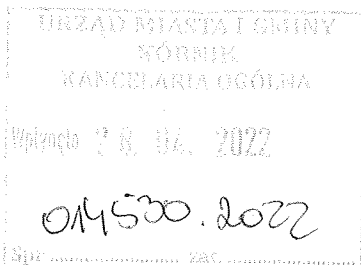 URZĄD MIASTA I GMINY
KÓRNIK
KANCELARIA OGÓLNA
Wpłynęło 28. 04. 2022
014530.2022
Spr. .................... zał. ....................